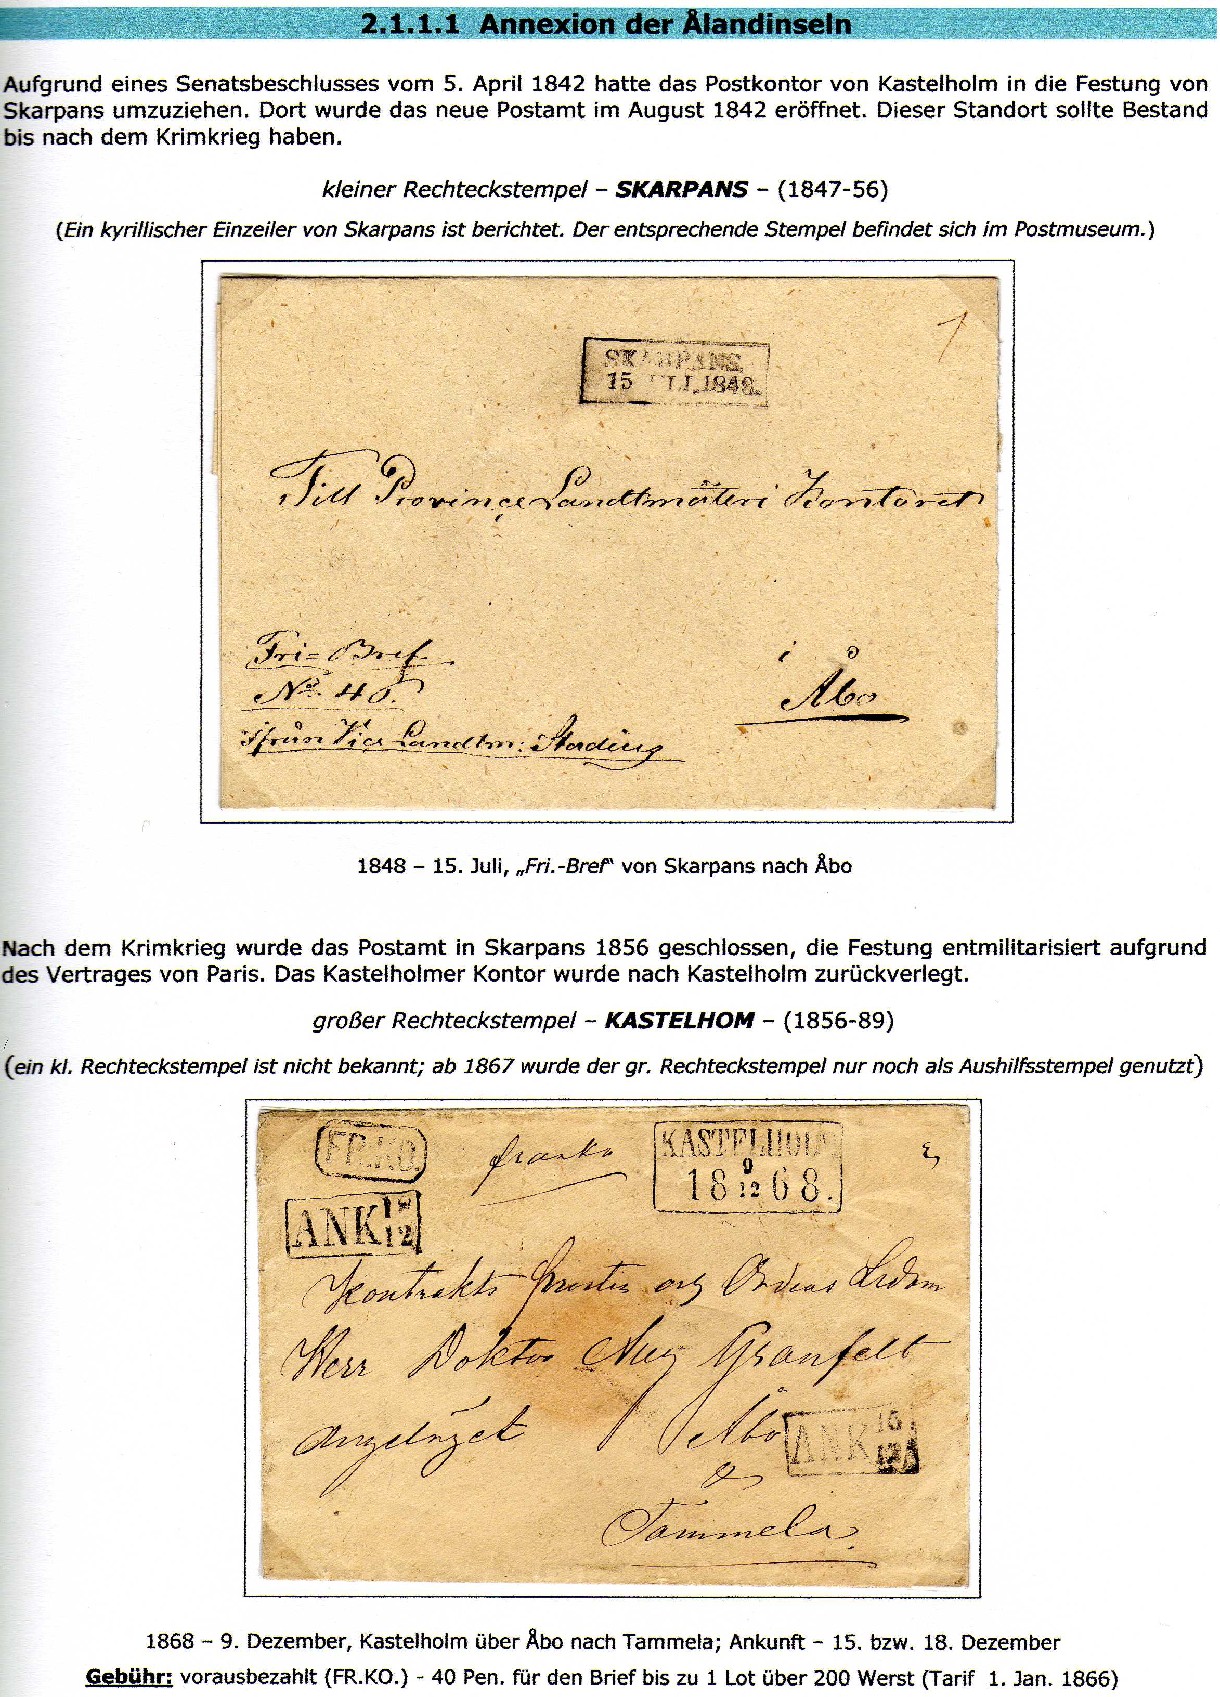 2.1.1.1 Annexion der Ålandinseln
Aufgrund eines Senatsbeschlusses vom 5. April 1842 hatte das Postkontor von Kastelholm in die Festung von
Skarpans umzuziehen. Dort wurde das neue Postamt im August 1842 eröffnet. Dieser Standort sollte Bestand
bis nach dem Krimkrieg haben.
kleiner Rechteckstempel – SKARPANS – (1847-56)
(Ein kyrillischer Einzeiler von Skarpans ist berichtet. Der entsprechende Stempel befindet sich im Postmuseum.)
SKARPANS.
15 JULI.1848.
Till Provinçe Landtmäteri Kontoret
i
Åbo
Fri=Bref.
No. 40.
ifrån Vice Landtm: Stading
1848 – 15. Juli, „Fri.-Bref“ von Skarpans nach Åbo
Nach dem Krimkrieg wurde das Postamt in Skarpans 1856 geschlossen, die Festung entmilitarisiert aufgrund
des Vertrages von Paris. Das Kastelholmer Kontor wurde nach Kastelholm zurückverlegt.
großer Rechteckstempel – KASTELHOM – (1856-89)
(ein kl. Rechteckstempel ist nicht bekannt; ab 1867 wurde der gr. Rechteckstempel nur noch als Aushilfsstempel genutzt)
FR.KO.
franko
KASTELHOLM
18 9/12 68.
ANK 12
Kontrakts Prosten och Ordens Ledam
Herr Doktor Aug Granfelt
Angeläget Åbo
ANK
Tammela
1868 – 9. Dezember, Kastelholm über Åbo nach Tammela; Ankunft – 15. bzw. 18. Dezember
Gebühr: vorausbezahlt (FR.KO.) - 40 Pen. für den Brief bis zu 1 Lot über 200 Werst (Tarif 1. Jan. 1866)